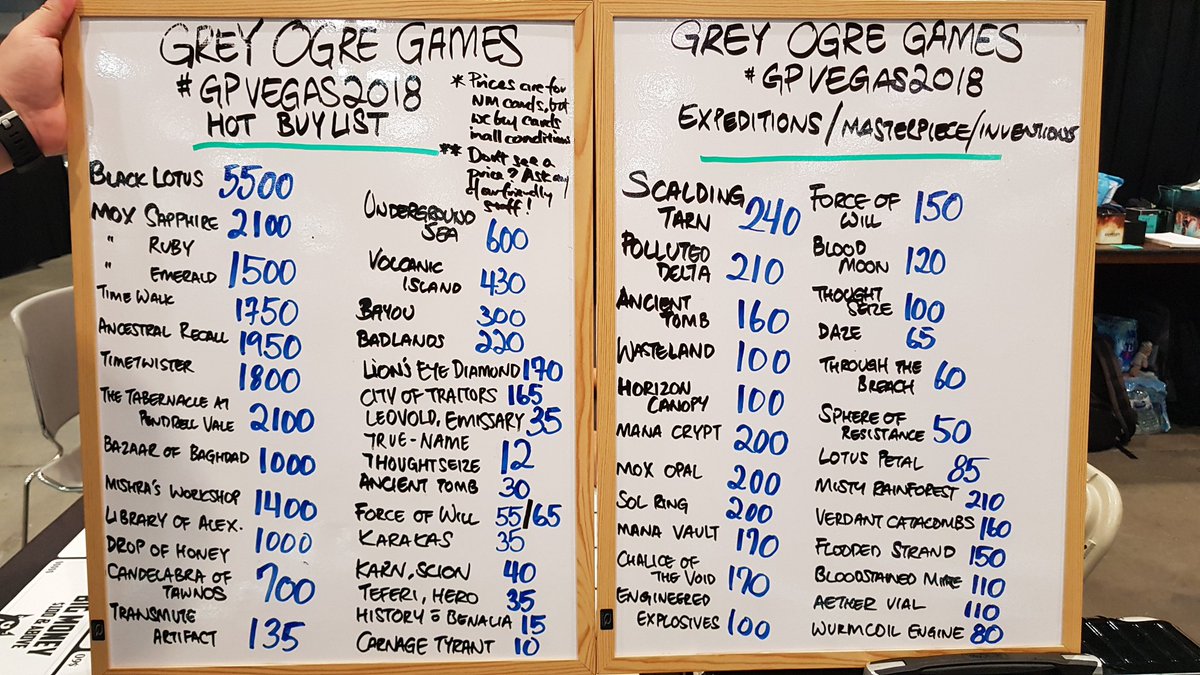 GREY OGRE GAMES
#GPVEGAS2018
HOT BUYLIST
* Prices are for
NM cards, but
we buy cards
in all conditions
** Don't see a
price? Ask any
of our friendly
staff!
BLACK LOTUS 5500
MOX SAPPHIRE 2100
" RUBY
" EMERALD 1500
TIME WALK 1750
ANCESTRAL RECALL 1950
TIMETWISTER 1800
THE TABERNACLE AT
PENDRELL VALE 2100
BAZAAR OF BAGHDAD 1000
MISHRA'S WORKSHOP 1400
LIBRARY OF ALEX. 1000
DROP OF HONEY
CANDELABRA OF
TAWNOS 700
TRANSMUTE
ARTIFACT 135
UNDERGROUND
SEA 600
VOLCANIC
ISLAND 430
BAYOU 300
BADLANDS 220
LION'S EYE DIAMOND 170
CITY OF TRAITORS 165
LEOVOLD, EMISSARY 35
TRUE-NAME
THOUGHTSEIZE 12
ANCIENT TOMB 30
FORCE OF WILL 55/65
KARAKAS 35
KARN, SCION 40
TEFERI, HERO 35
HISTORY o BENALIA 15
CARNAGE TYRANT 10
GREY OGRE GAMES
#GPVEGAS2018
EXPEDITIONS/MASTERPIECE/INVENTIONS
SCALDING
TARN 240
POLLUTED
DELTA 210
ANCIENT
TOMB 160
WASTELAND 100
HORIZON
CANOPY 100
MANA CRYPT 200
MOX OPAL 200
SOL RING 200
MANA VAULT 170
CHALICE OF
THE VOID 170
ENGINEERED
EXPLOSIVES 100
FORCE OF
WILL 150
BLOOD
MOON 120
THOUGHT
SEIZE 100
DAZE 65
THROUGH THE
BREACH 60
SPHERE OF
RESISTANCE 50
LOTUS PETAL 85
MISTY RAINFOREST 210
VERDANT CATACOMBS 160
FLOODED STRAND 150
BLOODSTAINED MIRE 110
AETHER VIAL 110
WURMCOIL ENGINE 80